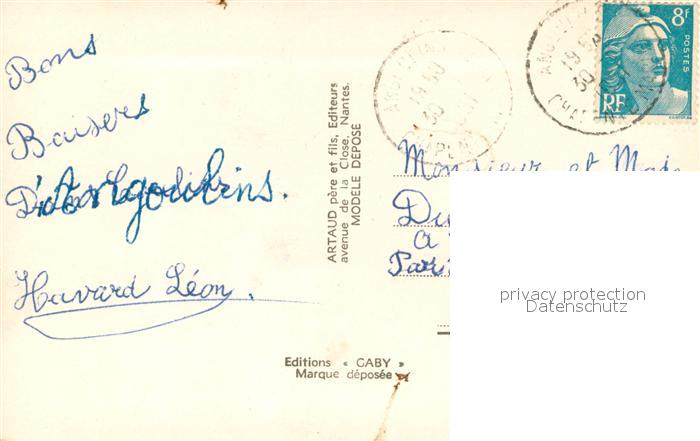 Bons
Baisers
D'Angoulins.
Havard Léon.
ARTAUD père et fils, Editeurs
avenue de la Close, Nantes.
MODELE DEPOSE
Editions « GABY »
Marque déposée
8F
POSTES
RF
19 30
30
Monsieur et Mad
Du
a
Pari
privacy protection
Datenschutz